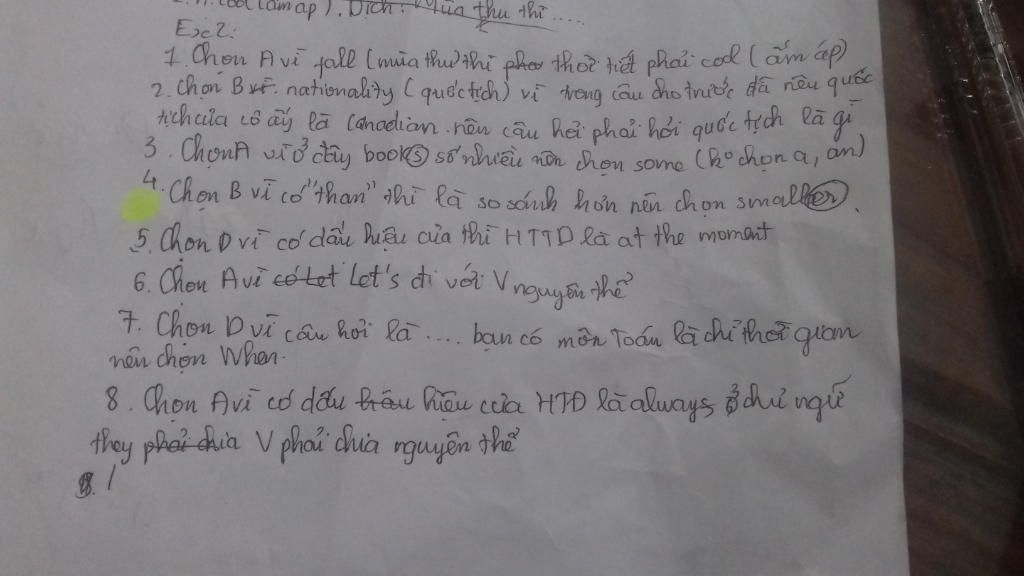 2. A. cool (ấm áp). Dịch: Mùa thu thì ....
Ex2:
1. Chọn A vì fall (mùa thu) thì phải thời tiết phải cool (ấm áp)
2. Chọn B vì. nationality (quốc tịch) vì trong câu cho trước đã nêu quốc
tịch của cô ấy là Canadian. nên câu hỏi phải hỏi quốc tịch là gì
3. Chọn A vì ở đây books số nhiều nên chọn some (ko chọn a, an)
4. Chọn B vì có "than" thì là so sánh hơn nên chọn smaller.
5. Chọn D vì có dấu hiệu của thì HTTD là at the moment
6. Chọn A vì có Let Let's đi với V nguyên thể
7. Chọn D vì câu hỏi là .... bạn có môn Toán là chỉ thời gian
nên chọn When.
8. Chọn A vì có dấu hiệu của HTĐ là always, ở chủ ngữ
they phải chia V phải chia nguyên thể